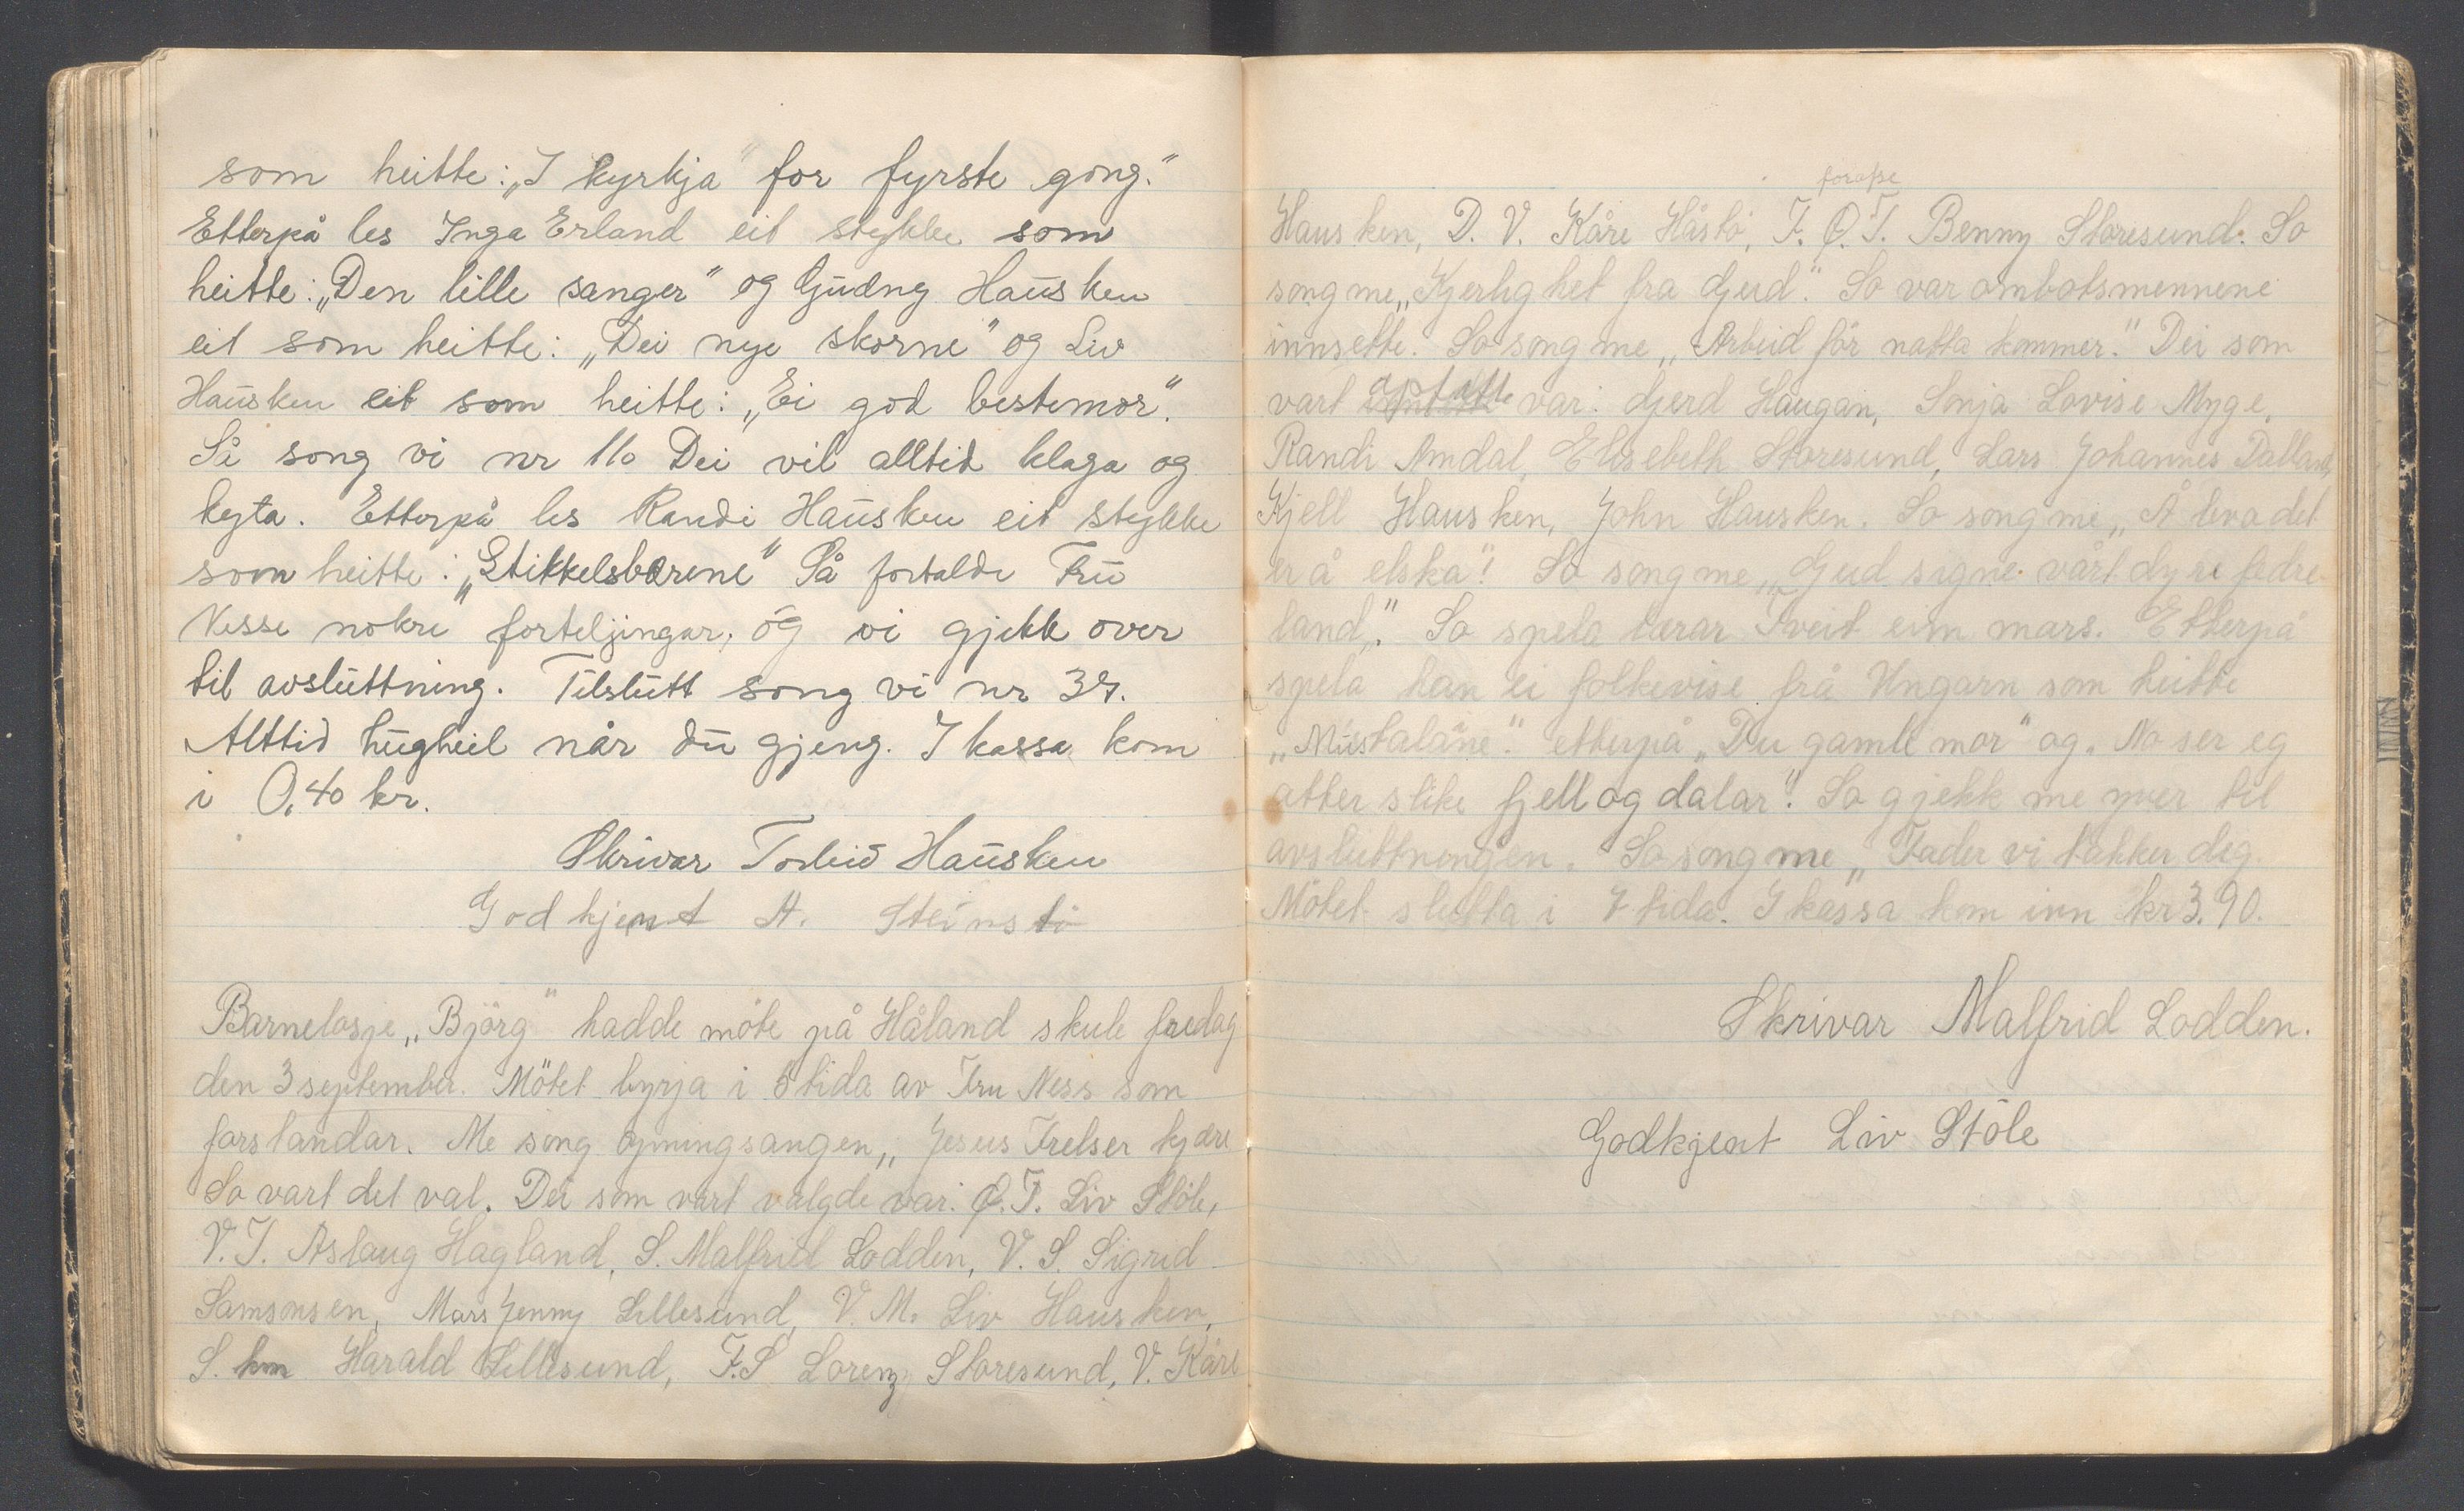 som heitte: „I kyrkja" for fyrste gong."
Etterpå les Inga Erland eit stykke som
heitte: „Den lille sanger" og Gudny Hausken
eit som heitte: „Dei nye skorne" og Liv
Hausken eit som heitte: „Ei god bestemor".
Så song vi nr 110 Dei vil alltid klaga og
kyta. Etterpå les Randi Hausken eit stykke
som heitte: „Stikkelsbærene" Så fortalde Fru
Nesse nokre forteljingar, og vi gjekk over
til avsluttning. Tilslutt song vi nr 37.
Alttid hugheil når du gjeng. I kassa kom
i 0,40 kr.
Skrivar Torleiv Hausken
Godkjent A. Steinstö
Barnelosje „Björg" hadde möte på Håland skule fredag
den 3 september. Mötet byrja i 5 tida av Fru Ness som
forstandar. Me song opningsangen „Jesus Frelser kjære
So vart det val. Dei som vart valgde var: Ø.T. Liv Stöle,
V.T. Aslaug Hagland, S. Malfrid Lodden, V. S. Sigrid
Samsonsen, Mars Jenny Lillesund, V. M. Liv Hausken,
S. km Harald Lillesund, F.S Lorenz Storesund, V. Kåre
Hausken, D. V. Kåre Håstö, F. Ø.T. Benny Storesund. So
song me „Kjerlighet fra Gud". So var ombotsmennene
innsette. So song me „Arbeid för natta kommer." Dei som
vart var: Gjerd Haugan, Sonja Lovise Myge,
Randi Amdal, Elisebeth Storesund, Lars Johannes Dalland,
Kjell Hausken, John Hausken. So song me „Å leva det
er å elska"! So song me „Gud signe vårt dyre fedre-
land". So spela lærar Tveit ein mars. Etterpå
spela han ei folkevise frå Ungarn som heitte
„Mustalåne". etterpå „Du gamle mor" og. No ser eg
atter slike fjell og dalar". So gjekk me yver til
avsluttningen. So song me „Fader vi takker deg.
Mötet slutta i 7 tida. I kassa kom inn kr 3.90.
Skrivar Malfrid Lodden.
Godkjent Liv Stöle